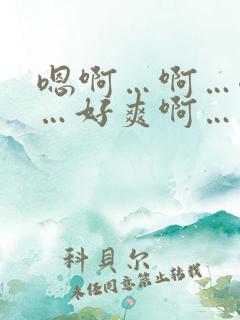 嗯啊…啊…
…好爽啊…
科貝尔
未经同意禁止转载